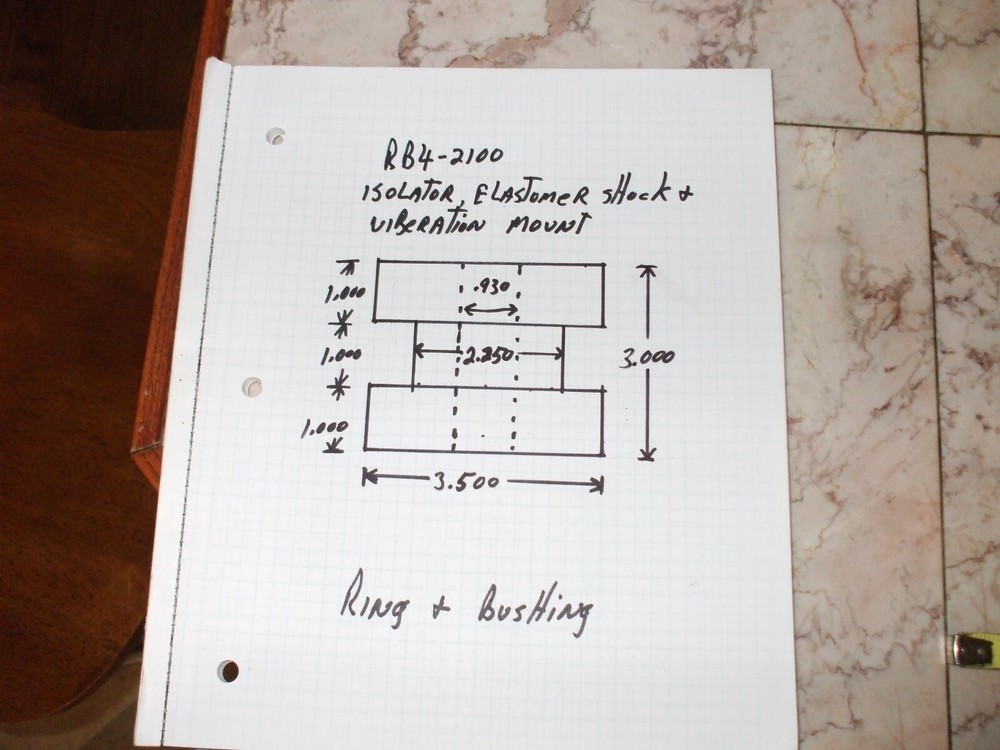 RB4-2100
ISOLATOR, ELASTOMER SHOCK &
VIBERATION MOUNT
1.000
.930
1.000
2.250
3.000
1.000
3.500
RING & BUSHING